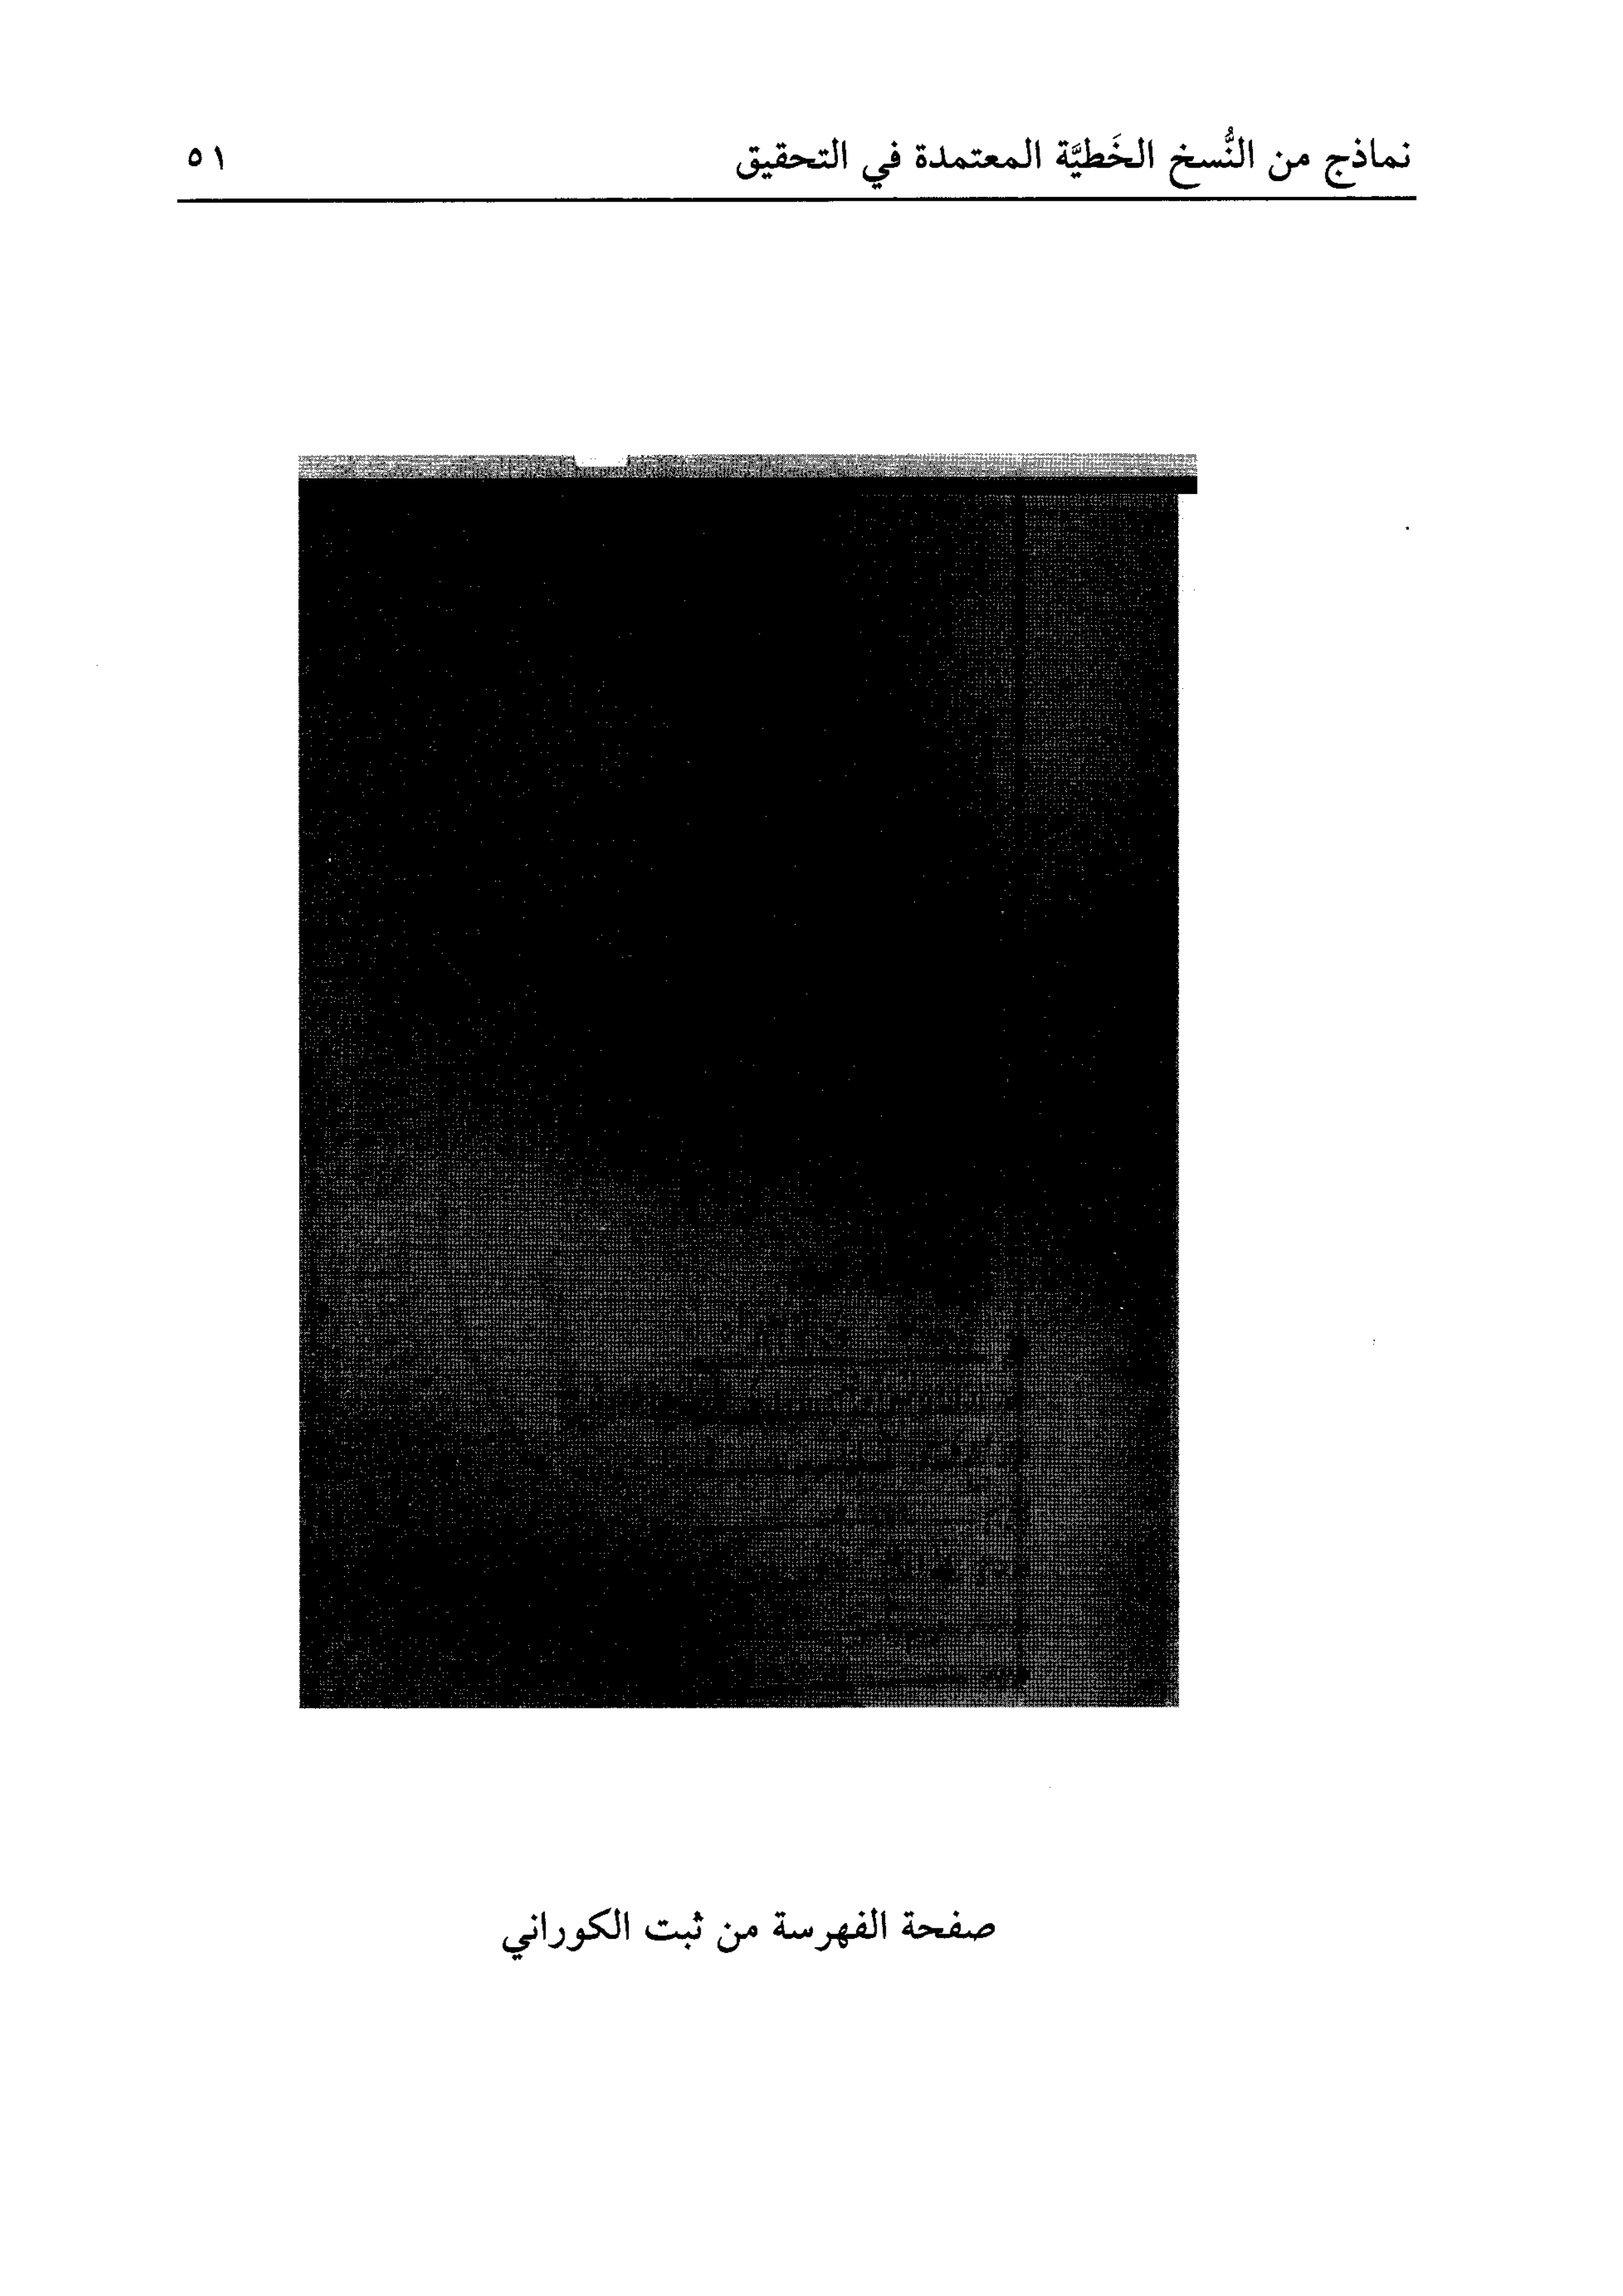 نماذج من النُّسخ الخَطيَّة المعتمدة في التحقيق ٥١
صفحة الفهرسة من ثبت الكوراني